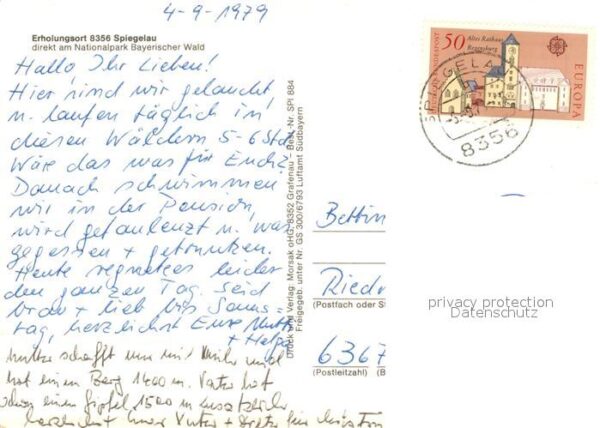 4-9-1979
Erholungsort 8356 Spiegelau
direkt am Nationalpark Bayerischer Wald
Hallo, Ihr Lieben!
Hier sind wir gelandet
u. laufen täglich in
diesen Wäldern 5-6 Std.
Wäre das was für Euch?
Danach schwimmen
wir in der Pension,
wird gefaulenzt u. was
gegessen + getrunken.
Heute regnet es leider
den ganzen Tag. Seid
brav + lieb bis Sams=
tag, herzlichst Eure Mutti
+ Helga
Mutter schafft nun mit
hat einen Berg 1400 m. Vater hat
schon einen Gipfel 1500 m zusätzlich
herzlichst Euer Vater +
Druck und Verlag: Morsak oHG, 8352 Grafenau – Best.-Nr. SPI 884
Freigegeben unter Nr. GS 300/6793 Luftamt Südbayern
50
Altes Rathaus
Regensburg
DEUTSCHE BUNDESPOST
EUROPA
CEPT
SPIEGELAU
8356
Bettin
Riede
(Postfach oder S
6367
(Postleitzahl) (B
privacy protection
Datenschutz